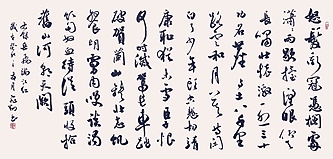 怒髮衝冠憑闌處瀟
瀟雨歇抬望眼仰天
長嘯壯懷激烈三十
功名塵與土八千里
路雲和月莫等閒
白了少年頭空悲切靖
康恥猶未雪臣子恨
何時滅駕長車踏
破賀蘭山缺壯志飢
餐胡虜肉笑談渴
飲匈奴血待從頭收拾
舊山河朝天闕
岳飛滿江紅